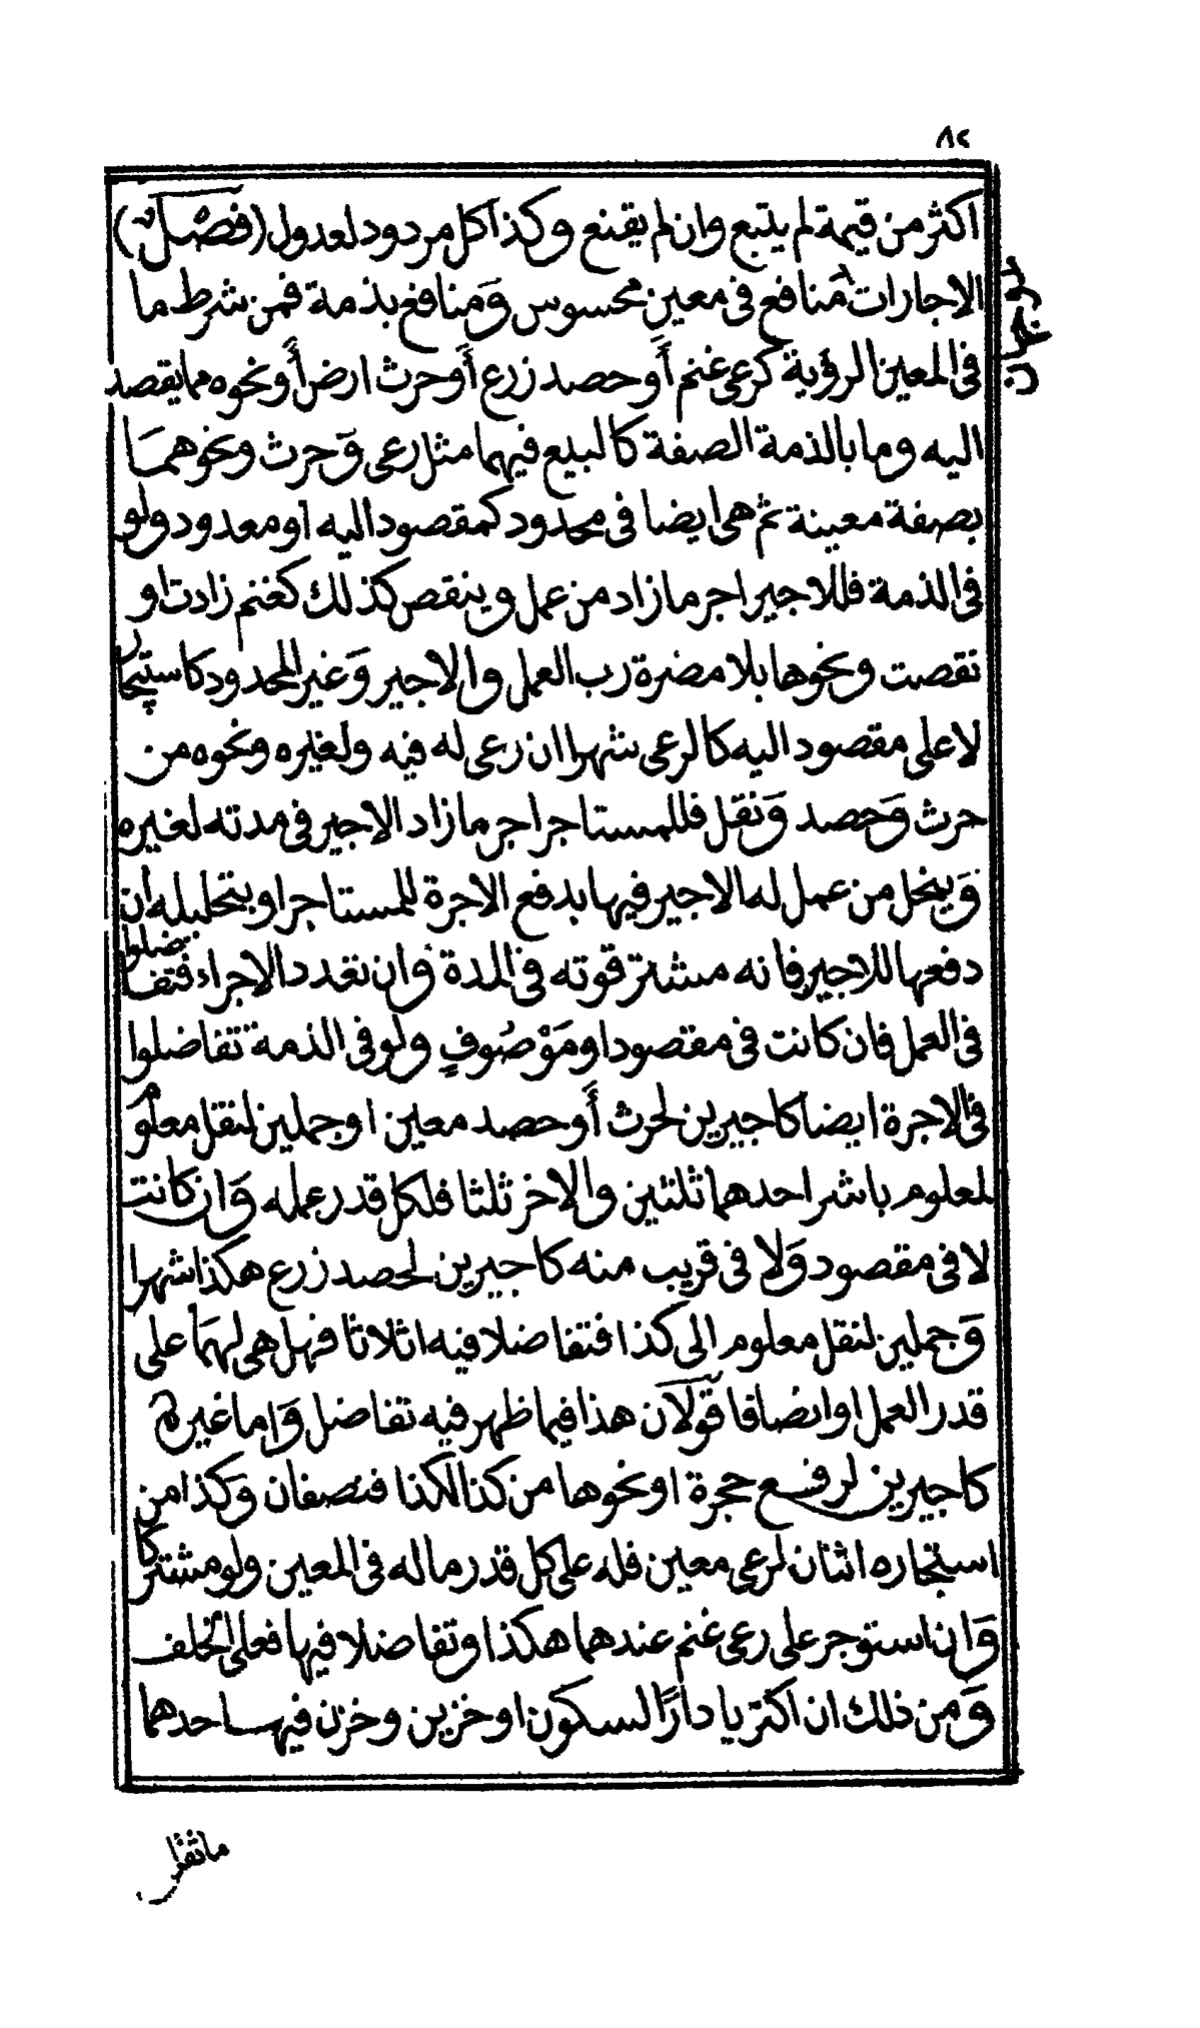 ٨٢
اكثر من قيمة لم يتبع وان لم يقنع وكذا كل مردود لعدول (فصل)
الاجارات منافع في معين محسوس ومنافع بذمة فمن شرط ما
في المعين الرؤية كرعي غنم أو حصد زرع أو حرث ارض أو نحوه مما يقصد
اليه وما بالذمة الصفة كالبيع فيهما مثل رعي وحرث ونحوهما
بصفة معينة ثم هي ايضا في محدود كمقصود اليه او معدود ولو
في الذمة فللاجير اجر ما زاد من عمل وينقص كذلك كغنم زادت او
نقصت ونحوها بلا مضرة رب العمل والاجير وغير المحدود كاستيجار
لا على مقصود اليه كالرعي شهرا ان رعى له فيه ولغيره ونحوه من
حرث وحصد ونقل فللمستاجر اجر ما زاد الاجير في مدته لغيره
وينحل من عمل له الاجير فيها بدفع الاجرة للمستاجر او بتحليله ان
دفعها للاجير فانه مشتر قوته في المدة وان تعدد الاجراء فتفاضلوا
في العمل فان كانت في مقصود او مَوْصُوفٍ ولو في الذمة تفاضلوا
في الاجرة ايضا كاجيرين لحرث أو حصد معين او جملين لنقل معلوم
لمعلوم باشر احدهما ثلثين والاخر ثلثا فلكل قدر عمله وان كانت
لا في مقصود ولا في قريب منه كاجيرين لحصد زرع هكذا شهرا
وجملين لنقل معلوم الى كذا فتفاضلا فيه اثلاثا فهل هي لهما على
قدر العمل او انصافا قولان هذا فيما ظهر فيه تفاضل واما غيره
كاجيرين لرفع حجرة او نحوها من كذا لكذا فنصفان وكذا من
استجاره اثنان لرعي معين فله على كل قدر ماله في المعين ولو مشتركا
وان استوجر على رعي غنم عندهما هكذا وتفاضلا فيها فعلى الخلف
ومن ذلك ان اكتريا دارًا لسكون او خزين وخزن فيها احدهما